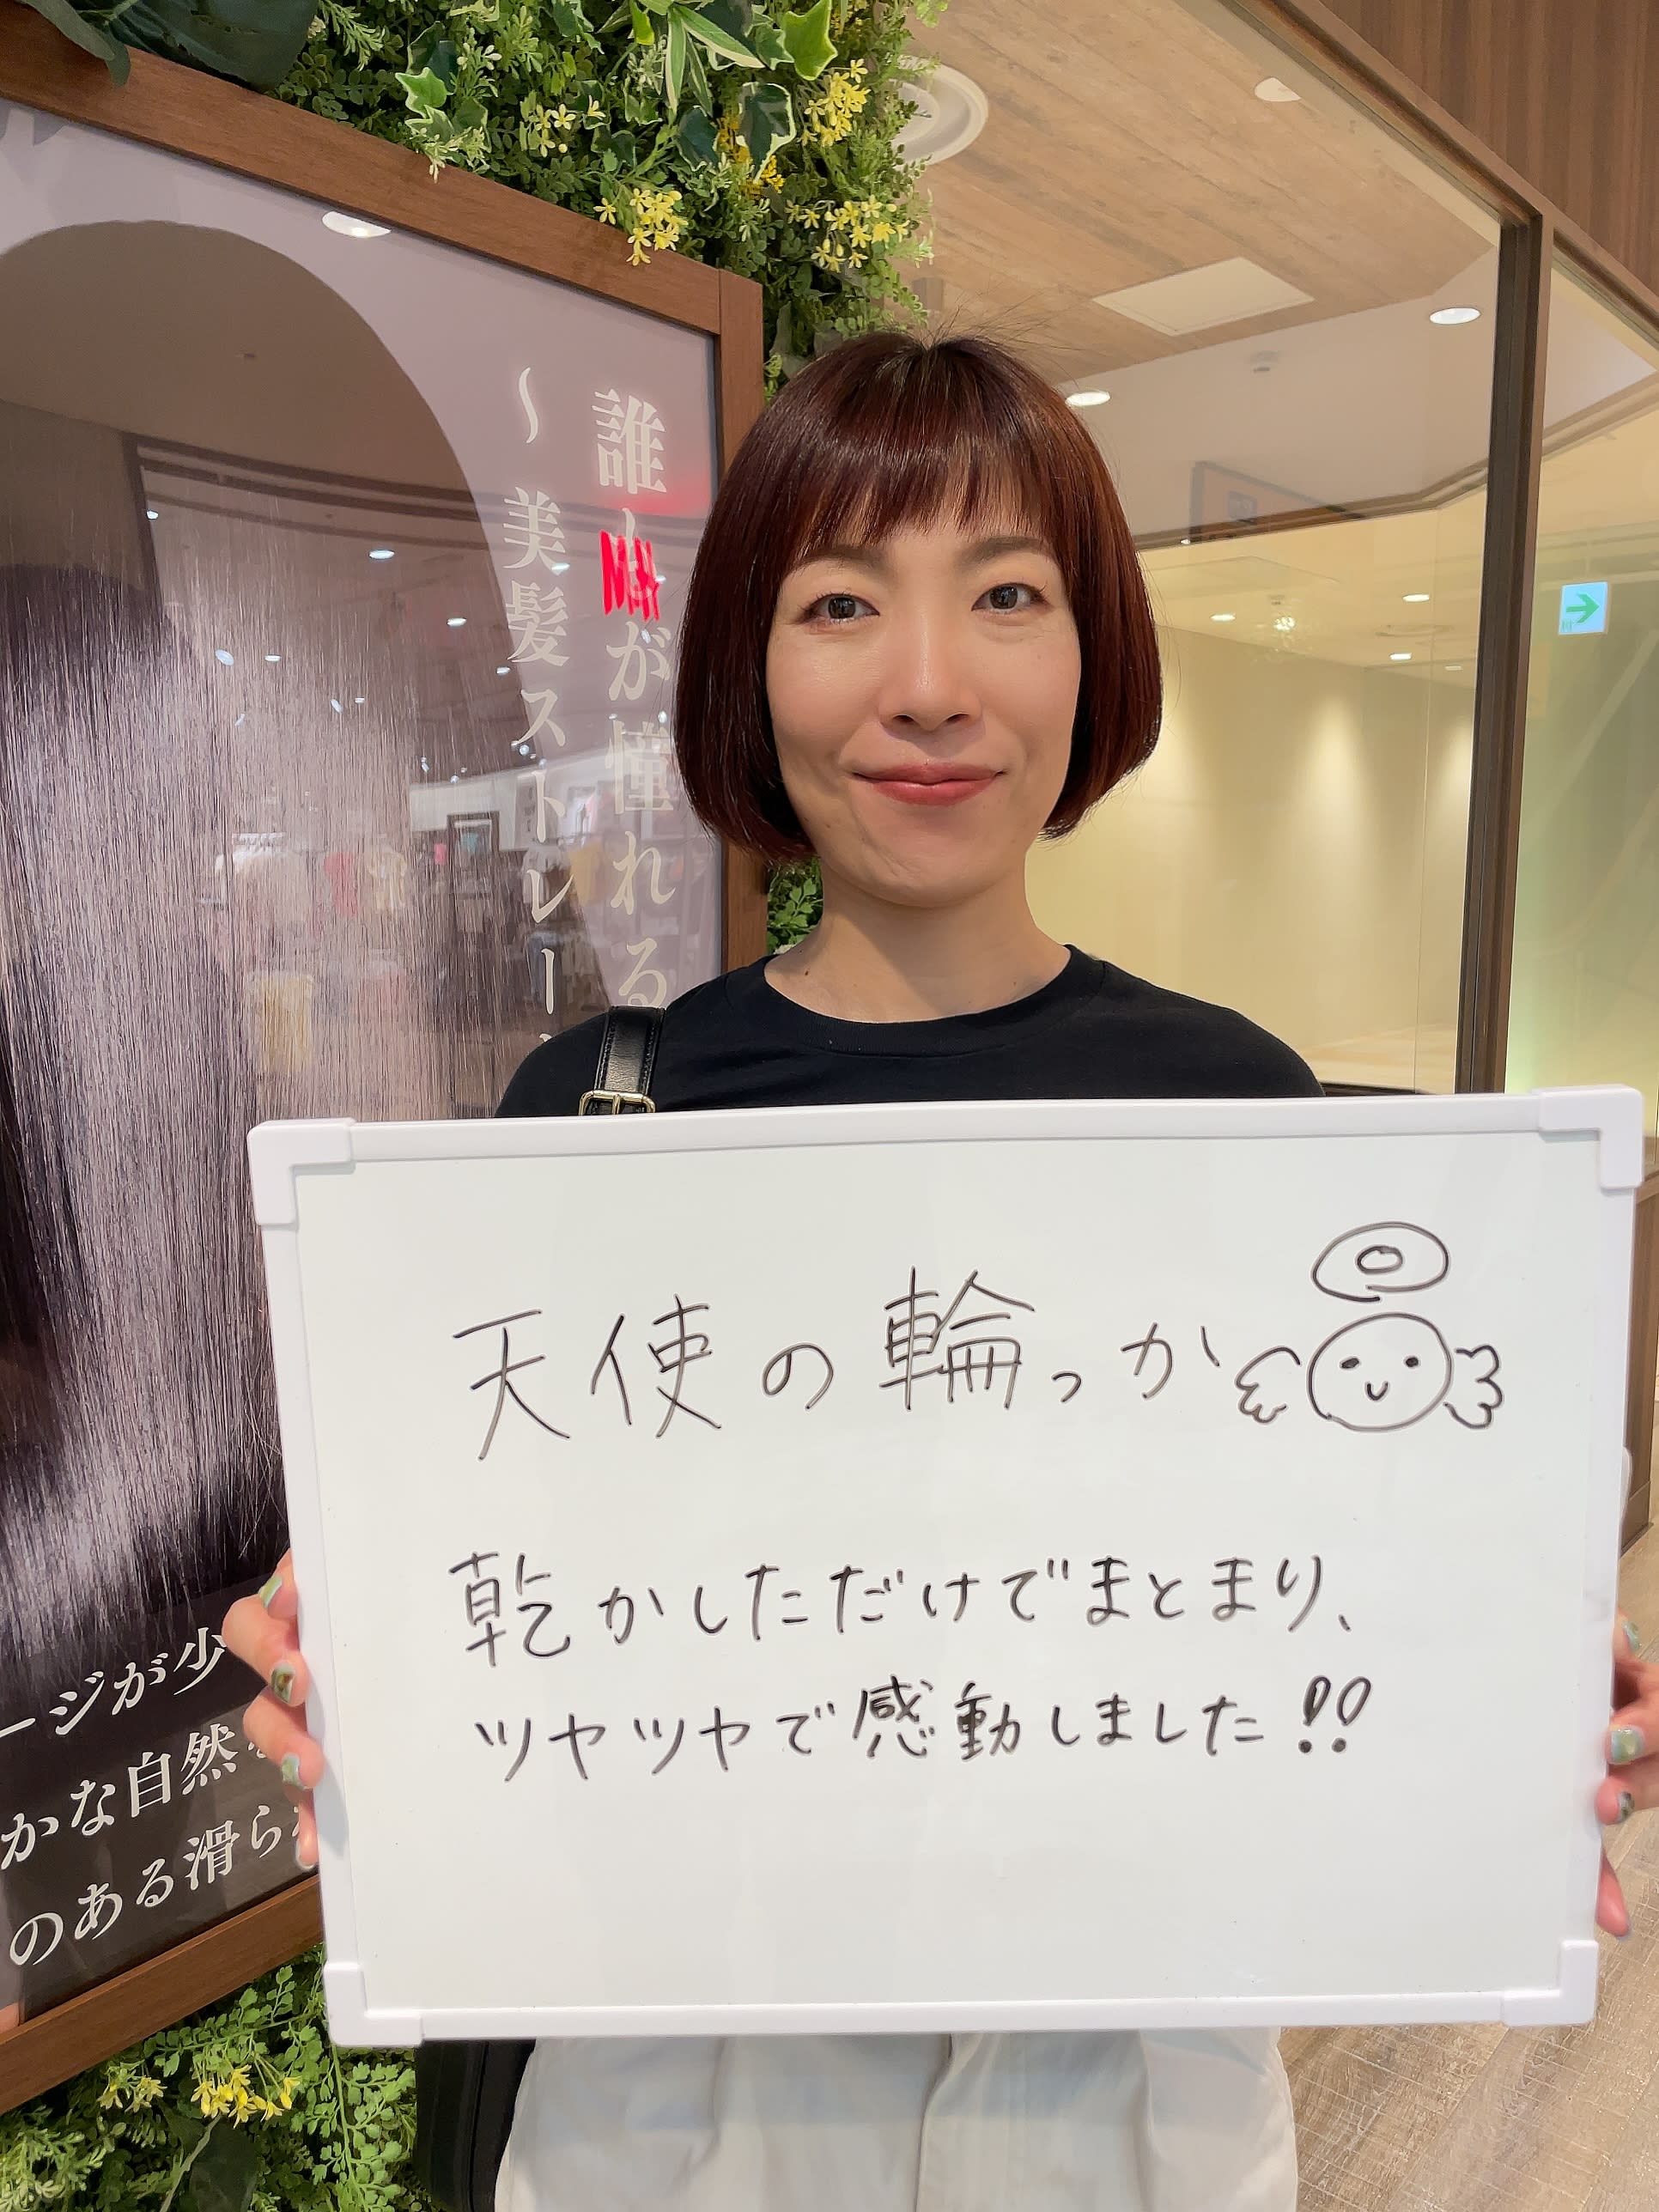 誰もが憧れる
～美髪ストレー
ージが少
かな自然
のある滑ら
天使の輪っか
乾かしただけでまとまり、
ツヤツヤで感動しました!!